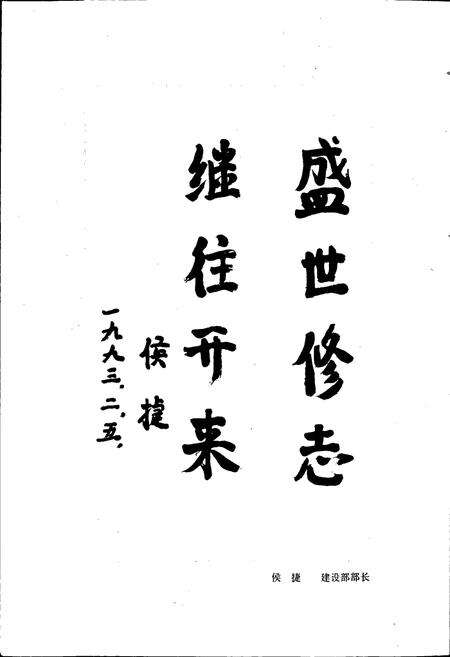 盛世修志
继往开来
侯捷
一九九三.二.五.
侯捷 建设部部长